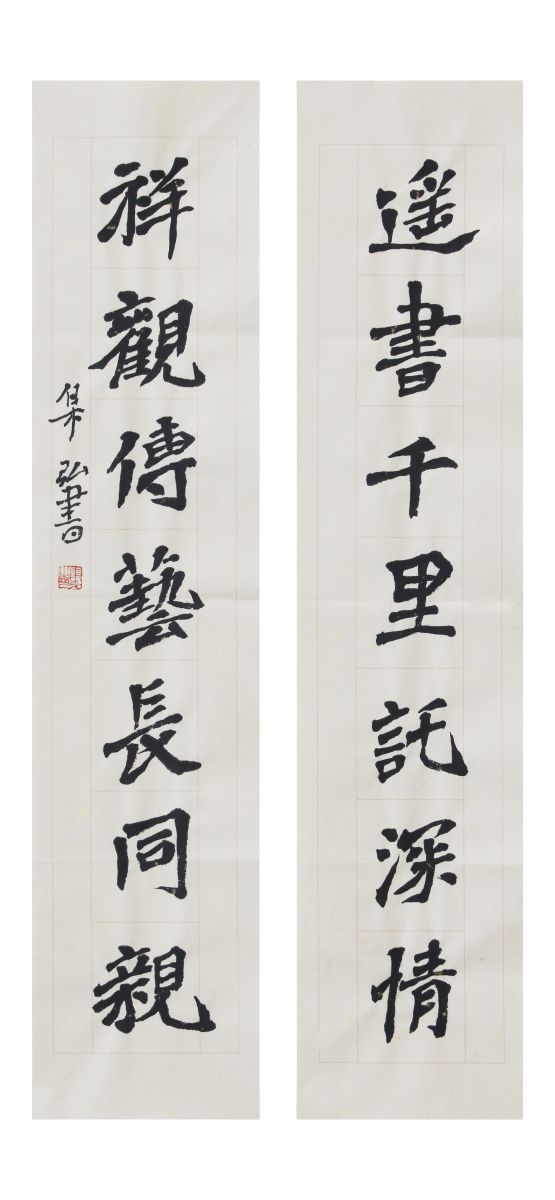 遥書千里託深情
祥觀傳藝長同親
集弘書